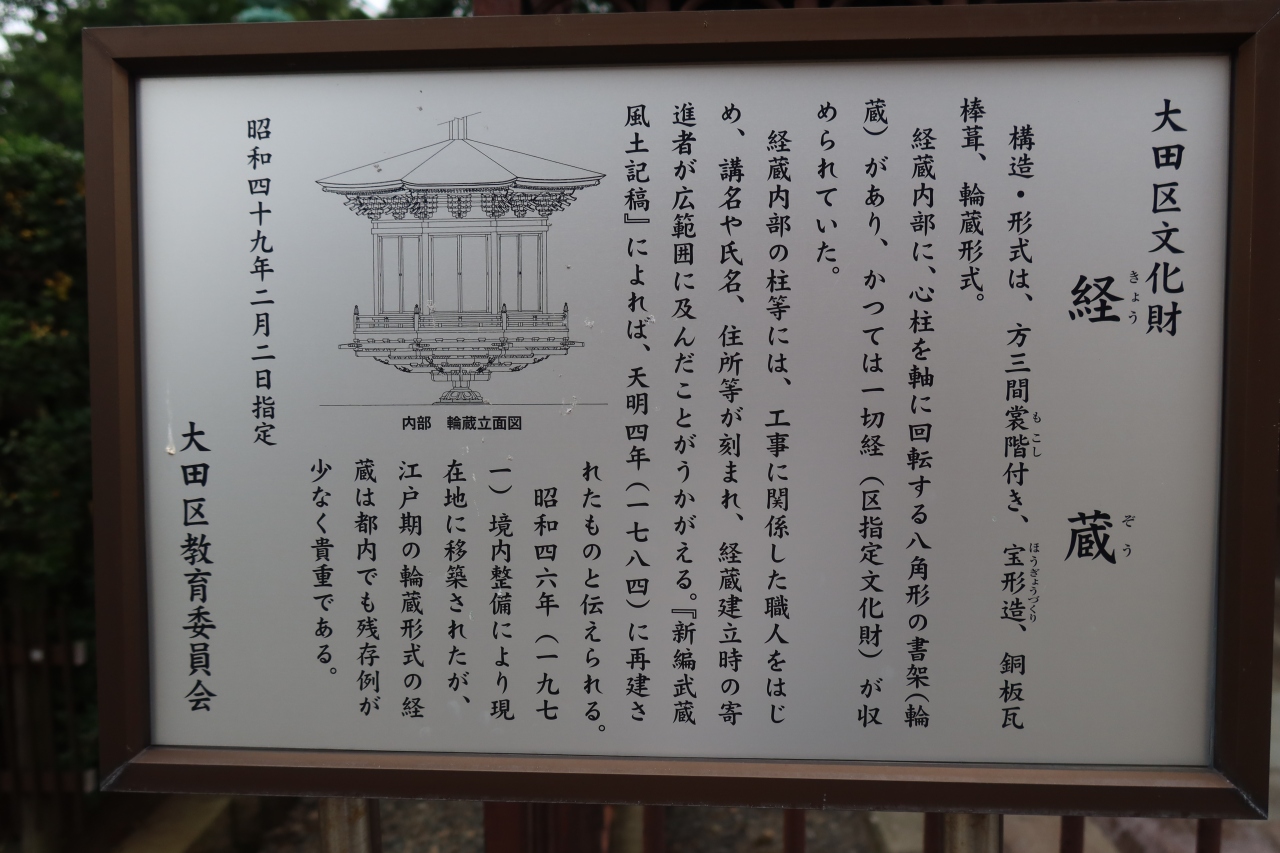 大田区文化財
経蔵
きょう
ぞう
構造・形式は、方三間裳階付き、宝形造、銅板瓦
もこし
ほうぎょうづくり
棒葺、輪蔵形式。
経蔵内部に、心柱を軸に回転する八角形の書架（輪
蔵）があり、かつては一切経（区指定文化財）が収
められていた。
経蔵内部の柱等には、工事に関係した職人をはじ
め、講名や氏名、住所等が刻まれ、経蔵建立時の寄
進者が広範囲に及んだことがうかがえる。『新編武蔵
風土記稿』によれば、天明四年（一七八四）に再建さ
れたものと伝えられる。
昭和四六年（一九七
一）境内整備により現
在地に移築されたが、
江戸期の輪蔵形式の経
蔵は都内でも残存例が
少なく貴重である。
内部　輪蔵立面図
昭和四十九年二月二日指定
大田区教育委員会